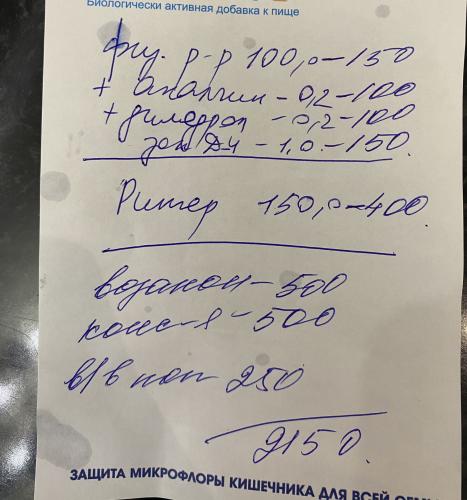 Биологически активная добавка к пище
физ. р-р 100,0 - 150
+ Анальгин - 0,2 - 100
+ димедрол - 0,2 - 100
- 1,0 - 150.
Рингер 150,0 - 400.
- 500
конс-я - 500
в/в кап 250
2150.
ЗАЩИТА МИКРОФЛОРЫ КИШЕЧНИКА ДЛЯ ВСЕЙ СЕМЬ